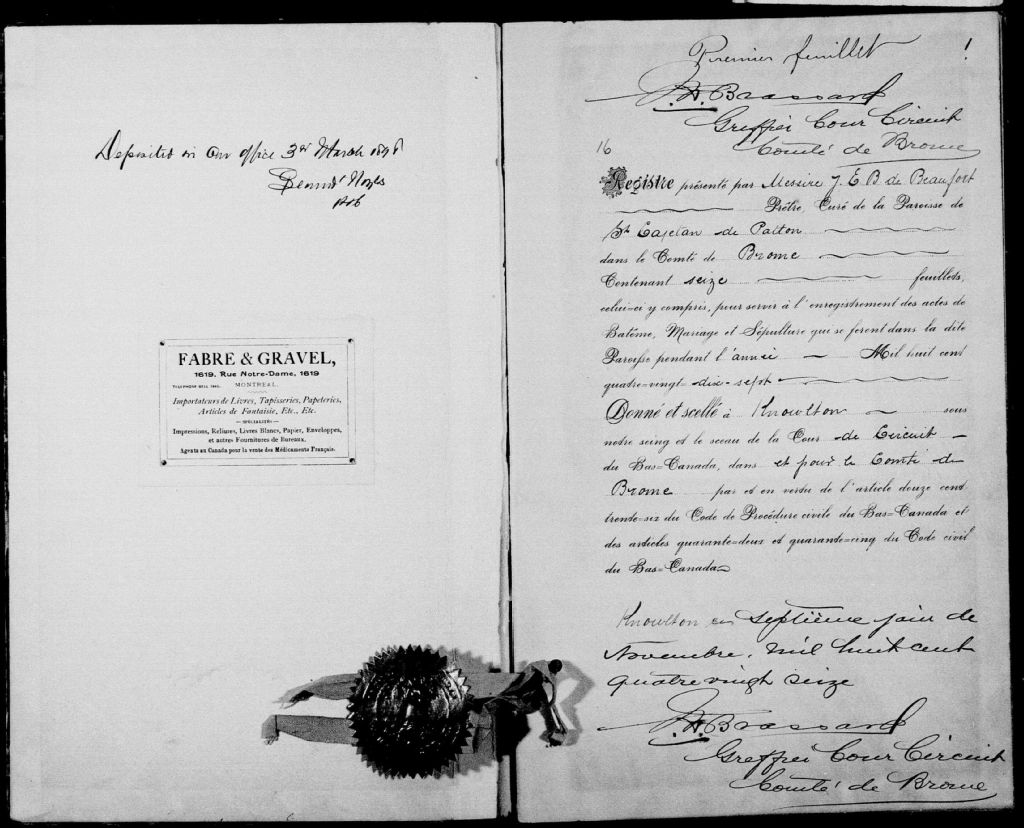 Deposited in our office 3rd March 1898
FABRE & GRAVEL,
1619, Rue Notre-Dame, 1619
MONTREAL.
Importateurs de Livres, Tapisseries, Papeteries,
Articles de Fantaisie, Etc., Etc.
SPÉCIALITÉS
Impressions, Reliures, Livres Blancs, Papier, Enveloppes,
et autres Fournitures de Bureaux.
Agents au Canada pour la vente des Médicaments Français.
Premier feuillet
1
Brassard
Greffier Cour Circuit
Comté de Brome
16
Registre présenté par Messire J. E B de Beaufort
Prêtre, Curé de la Paroisse de
St Cajetan de Patton
dans le Comté de Brome
Contenant seize feuillets,
celui=ci y compris, pour servir à l'enregistrement des actes de
Batême, Mariage et Sépulture qui se feront dans la dite
Paroisse pendant l'année Mil huit cent
quatre=vingt dix-sept
Donné et scellé à Knowlton sous
notre seing et le sceau de la Cour de Circuit
du Bas=Canada, dans et pour le Comté de
Brome par et en vertu de l'article douze cent
trente=six du Code de Procédure civile du Bas=Canada et
des articles quarante=deux et quarante=cinq du Code civil
du Bas=Canada
Knowlton septième jour de
Novembre, mil huit cent
quatre vingt seize
Brassard
Greffier Cour Circuit
Comté de Brome